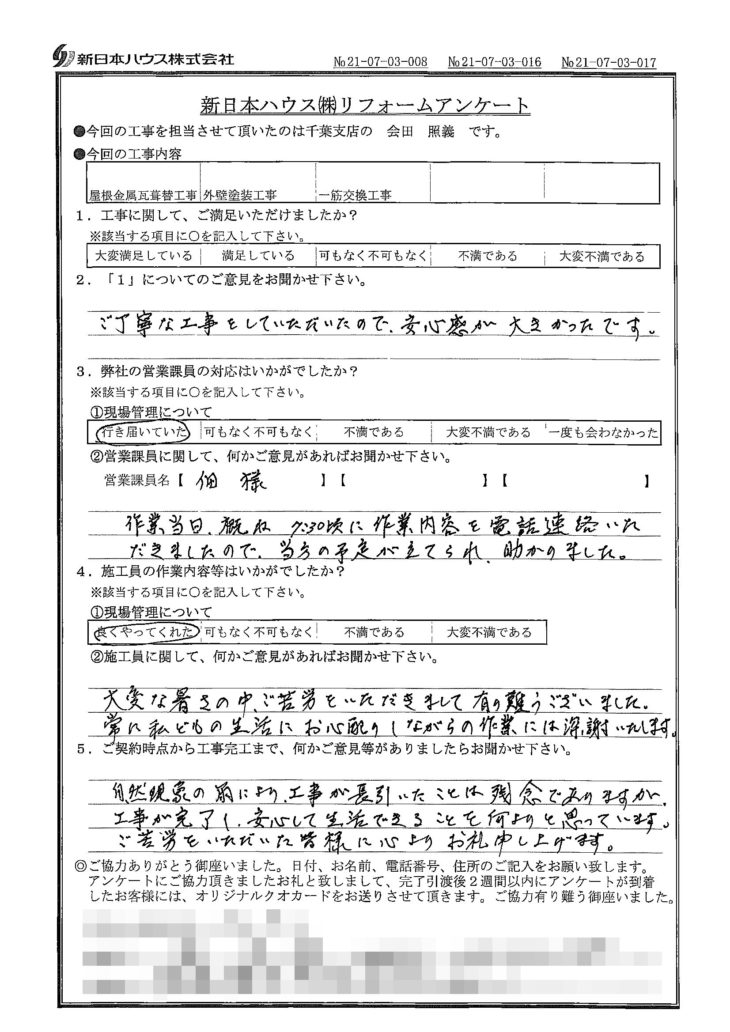 新日本ハウス株式会社 №21-07-03-008 №21-07-03-016 №21-07-03-017
新日本ハウス㈱リフォームアンケート
●今回の工事を担当させて頂いたのは千葉支店の 会田 照義 です。
●今回の工事内容
屋根金属瓦葺替工事 外壁塗装工事 一筋交換工事
1．工事に関して、ご満足いただけましたか？
※該当する項目に○を記入して下さい。
大変満足している 満足している 可もなく不可もなく 不満である 大変不満である
2．「1」についてのご意見をお聞かせ下さい。
ご丁寧な工事をしていただいたので、安心感が大きかったです。
3．弊社の営業課員の対応はいかがでしたか？
※該当する項目に○を記入して下さい。
①現場管理について
行き届いていた 可もなく不可もなく 不満である 大変不満である 一度も会わなかった
②営業課員に関して、何かご意見があればお聞かせ下さい。
営業課員名【 佃 様 】【 】【 】
作業当日、概ね 7:30頃に作業内容を電話連絡いた
だきましたので、当方の予定が立てられ、助かりました。
4．施工員の作業内容等はいかがでしたか？
※該当する項目に○を記入して下さい。
①現場管理について
良くやってくれた 可もなく不可もなく 不満である 大変不満である
②施工員に関して、何かご意見があればお聞かせ下さい。
大変な暑さの中、ご苦労をいただきまして有り難うございました。
常に私どもの生活にお心配りしながらの作業には深謝いたします。
5．ご契約時点から工事完工まで、何かご意見等がありましたらお聞かせ下さい。
自然現象の雨により、工事が長引いたことは残念でありますが、
工事が完了し、安心して生活できることを何よりと思っています。
ご苦労をいただいた皆様に心よりお礼申し上げます。
◎ご協力ありがとう御座いました。日付、お名前、電話番号、住所のご記入をお願い致します。
アンケートにご協力頂きましたお礼と致しまして、完了引渡後2週間以内にアンケートが到着
したお客様には、オリジナルクオカードをお送りさせて頂きます。ご協力有り難う御座いました。